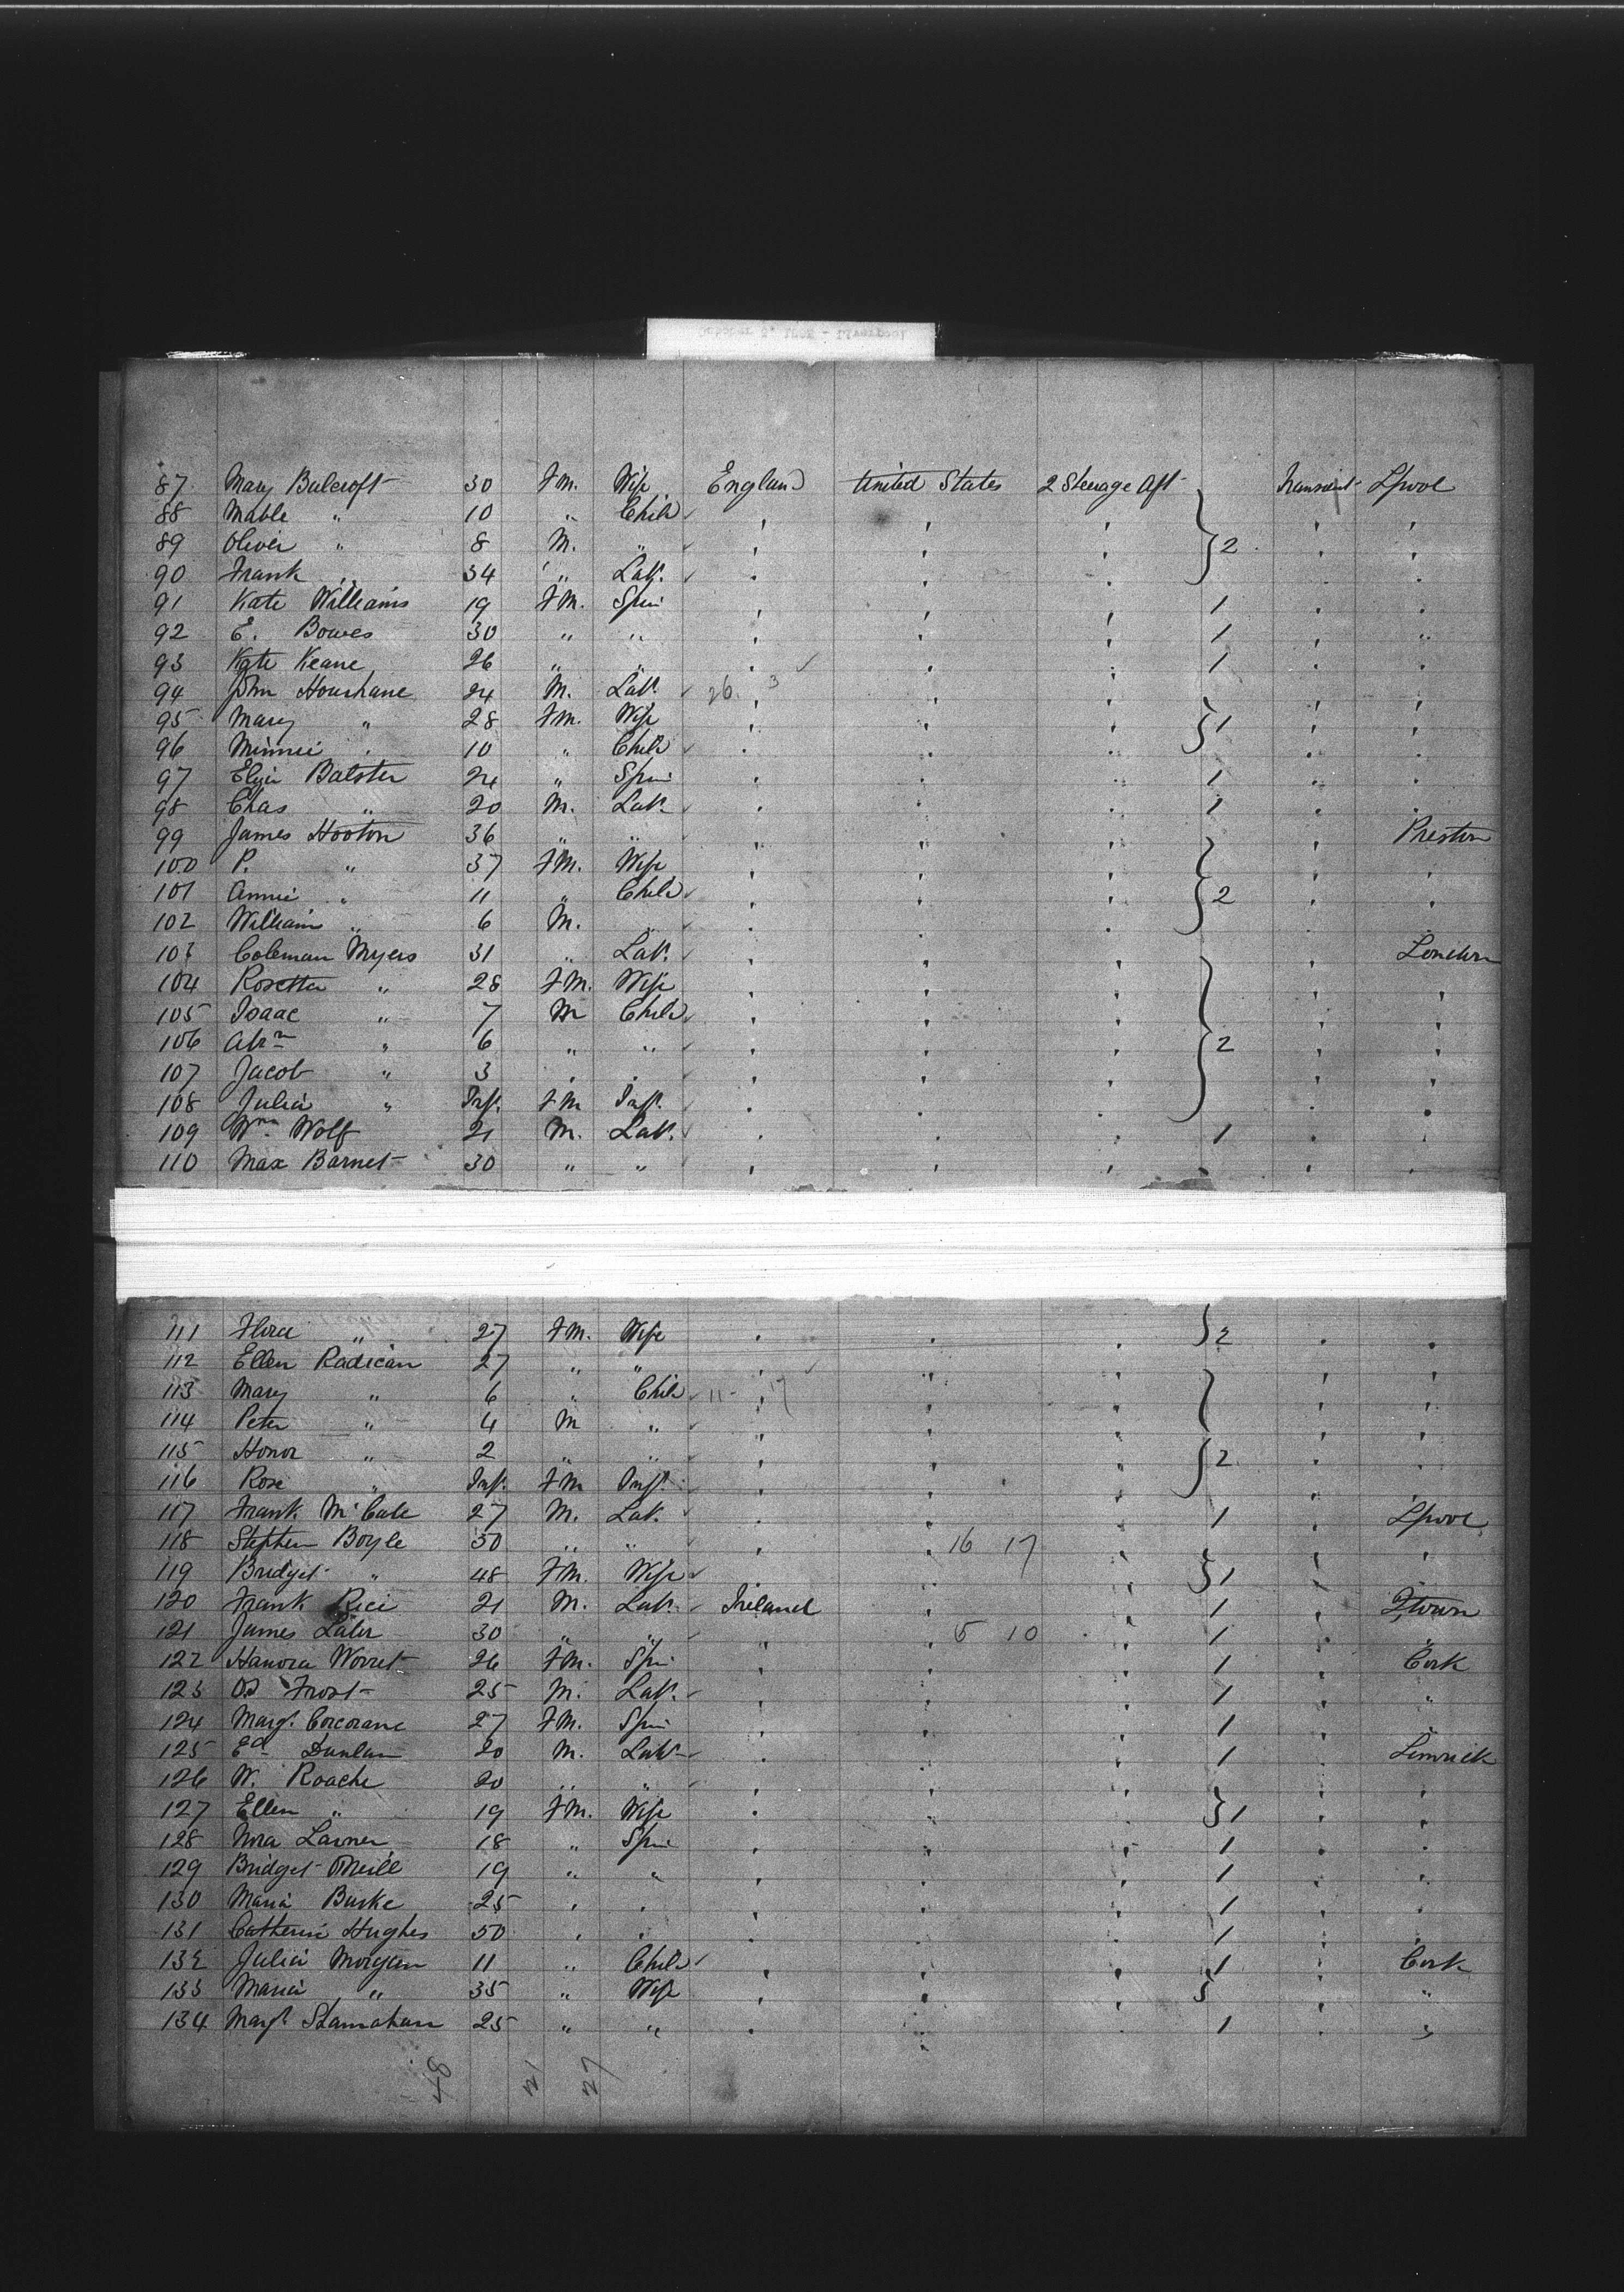 87 Mary Bulcroft 30 FM. Wife England United States 2 Steerage Aft Transient Lpool
88 Mable " 10 " Child ✓ " " " " "
89 Oliver " 8 M. " ✓ " " " 2 " "
90 Frank " 34 " Lab. ✓ " " " " "
91 Kate Williams 19 FM. Spin " " " 1 " "
92 E. Bowes 30 " " " " " 1 " "
93 Kate Keane 26 " " " ✓ " " 1 " "
94 John Hourhane 24 M. Lab. ✓ 26 3 " " " " "
95 Mary " 28 FM. Wife " " " 1 " "
96 Minnie " 10 " Child ✓ " " " " "
97 Eliza Balster 24 " Spin " " " 1 " "
98 Chas " 20 M. Lab. ✓ " " " 1 " "
99 James Hooton 36 " " ✓ " " " " Preston
100 P. " 37 FM. Wife " " " " "
101 Annie " 11 " Child ✓ " " " 2 " "
102 William " 6 M. " ✓ " " " " "
103 Coleman Myers 31 " Lab. ✓ " " " " London
104 Rosetta " 28 FM. Wife " " " " "
105 Isaac " 7 M Child ✓ " " " " "
106 Abm " 6 " " ✓ " " " 2 " "
107 Jacob " 3 " " ✓ " " " " "
108 Julia " Inf. FM Inf. ✓ " " " " "
109 Wm Wolf 21 M. Lab. ✓ " " " 1 " "
110 Max Barnet 30 " " ✓ " " " " "
111 Flora " 27 FM. Wife " " " 2 " "
112 Ellen Radican 27 " " " ✓ " " " "
113 Mary " 6 " Child ✓ 11 - 17 " " " " "
114 Peter " 4 M " ✓ " " " " "
115 Honor " 2 " " ✓ " " " 2 " "
116 Rose " Inf. FM Inf. ✓ " " " " "
117 Frank McCabe 27 M. Lab. ✓ " " " 1 " Lpool
118 Stephen Boyle 50 " " ✓ " " 16 17 " " "
119 Bridget " 48 FM. Wife ✓ " " " 1 " "
120 Frank Rice 21 M. Lab. ✓ Ireland " " 1 " Qtown
121 James Lalor 30 " " ✓ " " 5 10 " 1 " "
122 Hanora Worret 26 FM. Spin " " " 1 " Cork
123 Frost 25 M. Lab. ✓ " " " 1 " "
124 Margt. Corcorane 27 FM. Spin " " " 1 " "
125 Ed Dunlan 20 M. Lab. ✓ " " " 1 " Limrick
126 W. Roache 20 " " ✓ " " " " "
127 Ellen " 19 FM. Wife " " " 1 " "
128 Nora Larner 18 " Spin " " " 1 " "
129 Bridget ONeill 19 " " " " " 1 " "
130 Maria Burke 25 " " " " " 1 " "
131 Catherin Hughes 50 " " " " " 1 " "
132 Julia Morgan 11 " Child ✓ " " " 1 " Cork
133 Maria " 35 " Wife " " " " "
134 Margt 25 " " " " " 1 " "
48 21 27